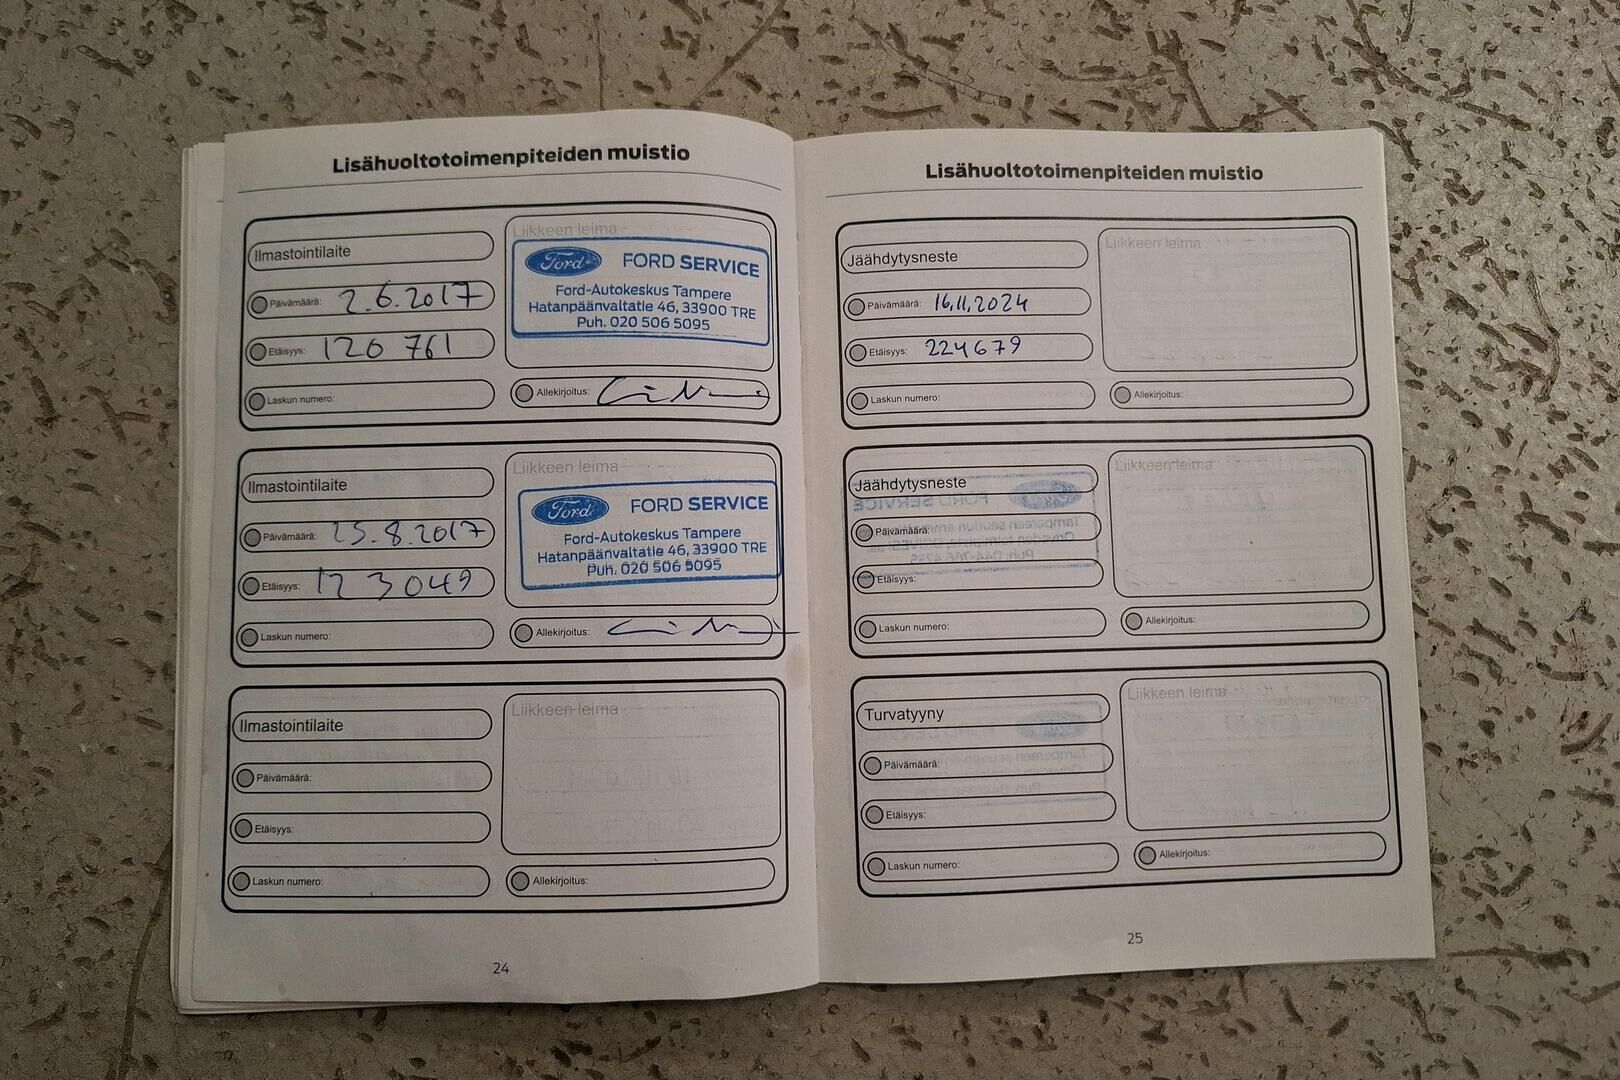 Lisähuoltotoimenpiteiden muistio
Ilmastointilaite
Päivämäärä: 2.6.2017
Etäisyys: 120 761
Laskun numero:
Liikkeen leima
Ford FORD SERVICE
Ford-Autokeskus Tampere
Hatanpäänvaltatie 46, 33900 TRE
Puh. 020 506 5095
Allekirjoitus:
Ilmastointilaite
Päivämäärä: 25.8.2017
Etäisyys: 123049
Laskun numero:
Liikkeen leima
Ford FORD SERVICE
Ford-Autokeskus Tampere
Hatanpäänvaltatie 46, 33900 TRE
Puh. 020 506 5095
Allekirjoitus:
Ilmastointilaite
Päivämäärä:
Etäisyys:
Laskun numero:
Liikkeen leima
Allekirjoitus:
24
Lisähuoltotoimenpiteiden muistio
Jäähdytysneste
Päivämäärä: 16.11.2024
Etäisyys: 224679
Laskun numero:
Liikkeen leima
Allekirjoitus:
Jäähdytysneste
Päivämäärä:
Etäisyys:
Laskun numero:
Liikkeen leima
Allekirjoitus:
Turvatyyny
Päivämäärä:
Etäisyys:
Laskun numero:
Liikkeen leima
Allekirjoitus:
25